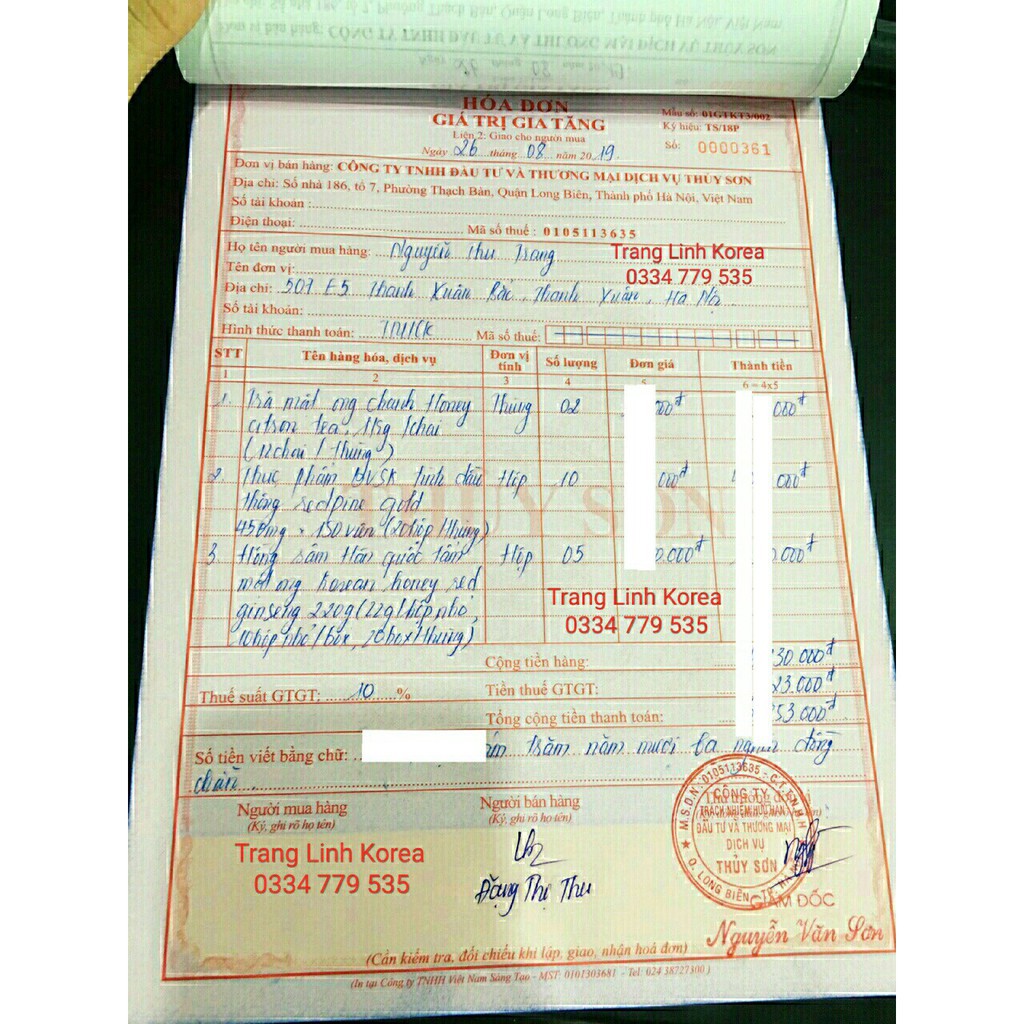 Đơn vị bán hàng: CÔNG TY TNHH ĐẦU TƯ VÀ THƯƠNG MẠI DỊCH VỤ THỦY SƠN
HÓA ĐƠN
GIÁ TRỊ GIA TĂNG
Liên 2: Giao cho người mua
Ngày 26 tháng 08 năm 2019
Mẫu số: 01GTKT3/002
Ký hiệu: TS/18P
Số: 0000361
Đơn vị bán hàng: CÔNG TY TNHH ĐẦU TƯ VÀ THƯƠNG MẠI DỊCH VỤ THỦY SƠN
Địa chỉ: Số nhà 186, tổ 7, Phường Thạch Bàn, Quận Long Biên, Thành phố Hà Nội, Việt Nam
Số tài khoản:
Điện thoại: Mã số thuế: 0105113635
Họ tên người mua hàng: Nguyễn Thu Trang
Trang Linh Korea
0334 779 535
Tên đơn vị:
Địa chỉ: 507 E5 Thanh Xuân Bắc, Thanh Xuân, Hà Nội
Số tài khoản:
Hình thức thanh toán: TM/CK Mã số thuế:
STT Tên hàng hóa, dịch vụ Đơn vị tính Số lượng Đơn giá Thành tiền
1 2 3 4 5 6 = 4x5
1. Trà mật ong chanh Honey Thùng 02 000đ 000đ
citron tea, 1kg/chai
(12chai/Thùng)
2. Thực phẩm BVSK tinh dầu Hộp 10 000đ 000đ
thông redpine gold
450mg x 150 viên (20hộp/Thùng)
3 Hồng sâm Hàn quốc tẩm Hộp 05 0.000đ 0.000đ
mật ong Korean honey red
ginseng 220g (22g/hộp nhỏ,
10hộp nhỏ/box, 20box/Thùng)
THUY SON
Trang Linh Korea
0334 779 535
Cộng tiền hàng: 30.000đ
Thuế suất GTGT: 10 % Tiền thuế GTGT: 23.000đ
Tổng cộng tiền thanh toán: 53.000đ
Số tiền viết bằng chữ: trăm năm mươi ba nghìn đồng
chẵn
Người mua hàng
(Ký, ghi rõ họ tên)
Người bán hàng
(Ký, ghi rõ họ tên)
Trang Linh Korea
0334 779 535
Đặng Thị Thu
M.S.D.N: 0105113635 - C.T.T.N.H.H
CÔNG TY
TRÁCH NHIỆM HỮU HẠN
ĐẦU TƯ VÀ THƯƠNG MẠI
DỊCH VỤ
THỦY SƠN
Q. LONG BIÊN - TP. HÀ NỘI
GIÁM ĐỐC
Nguyễn Văn Sơn
(Cần kiểm tra, đối chiếu khi lập, giao, nhận hoá đơn)
(In tại Công ty TNHH Việt Nam Sáng Tạo - MST: 0101303681 - Tel: 024 38727300)